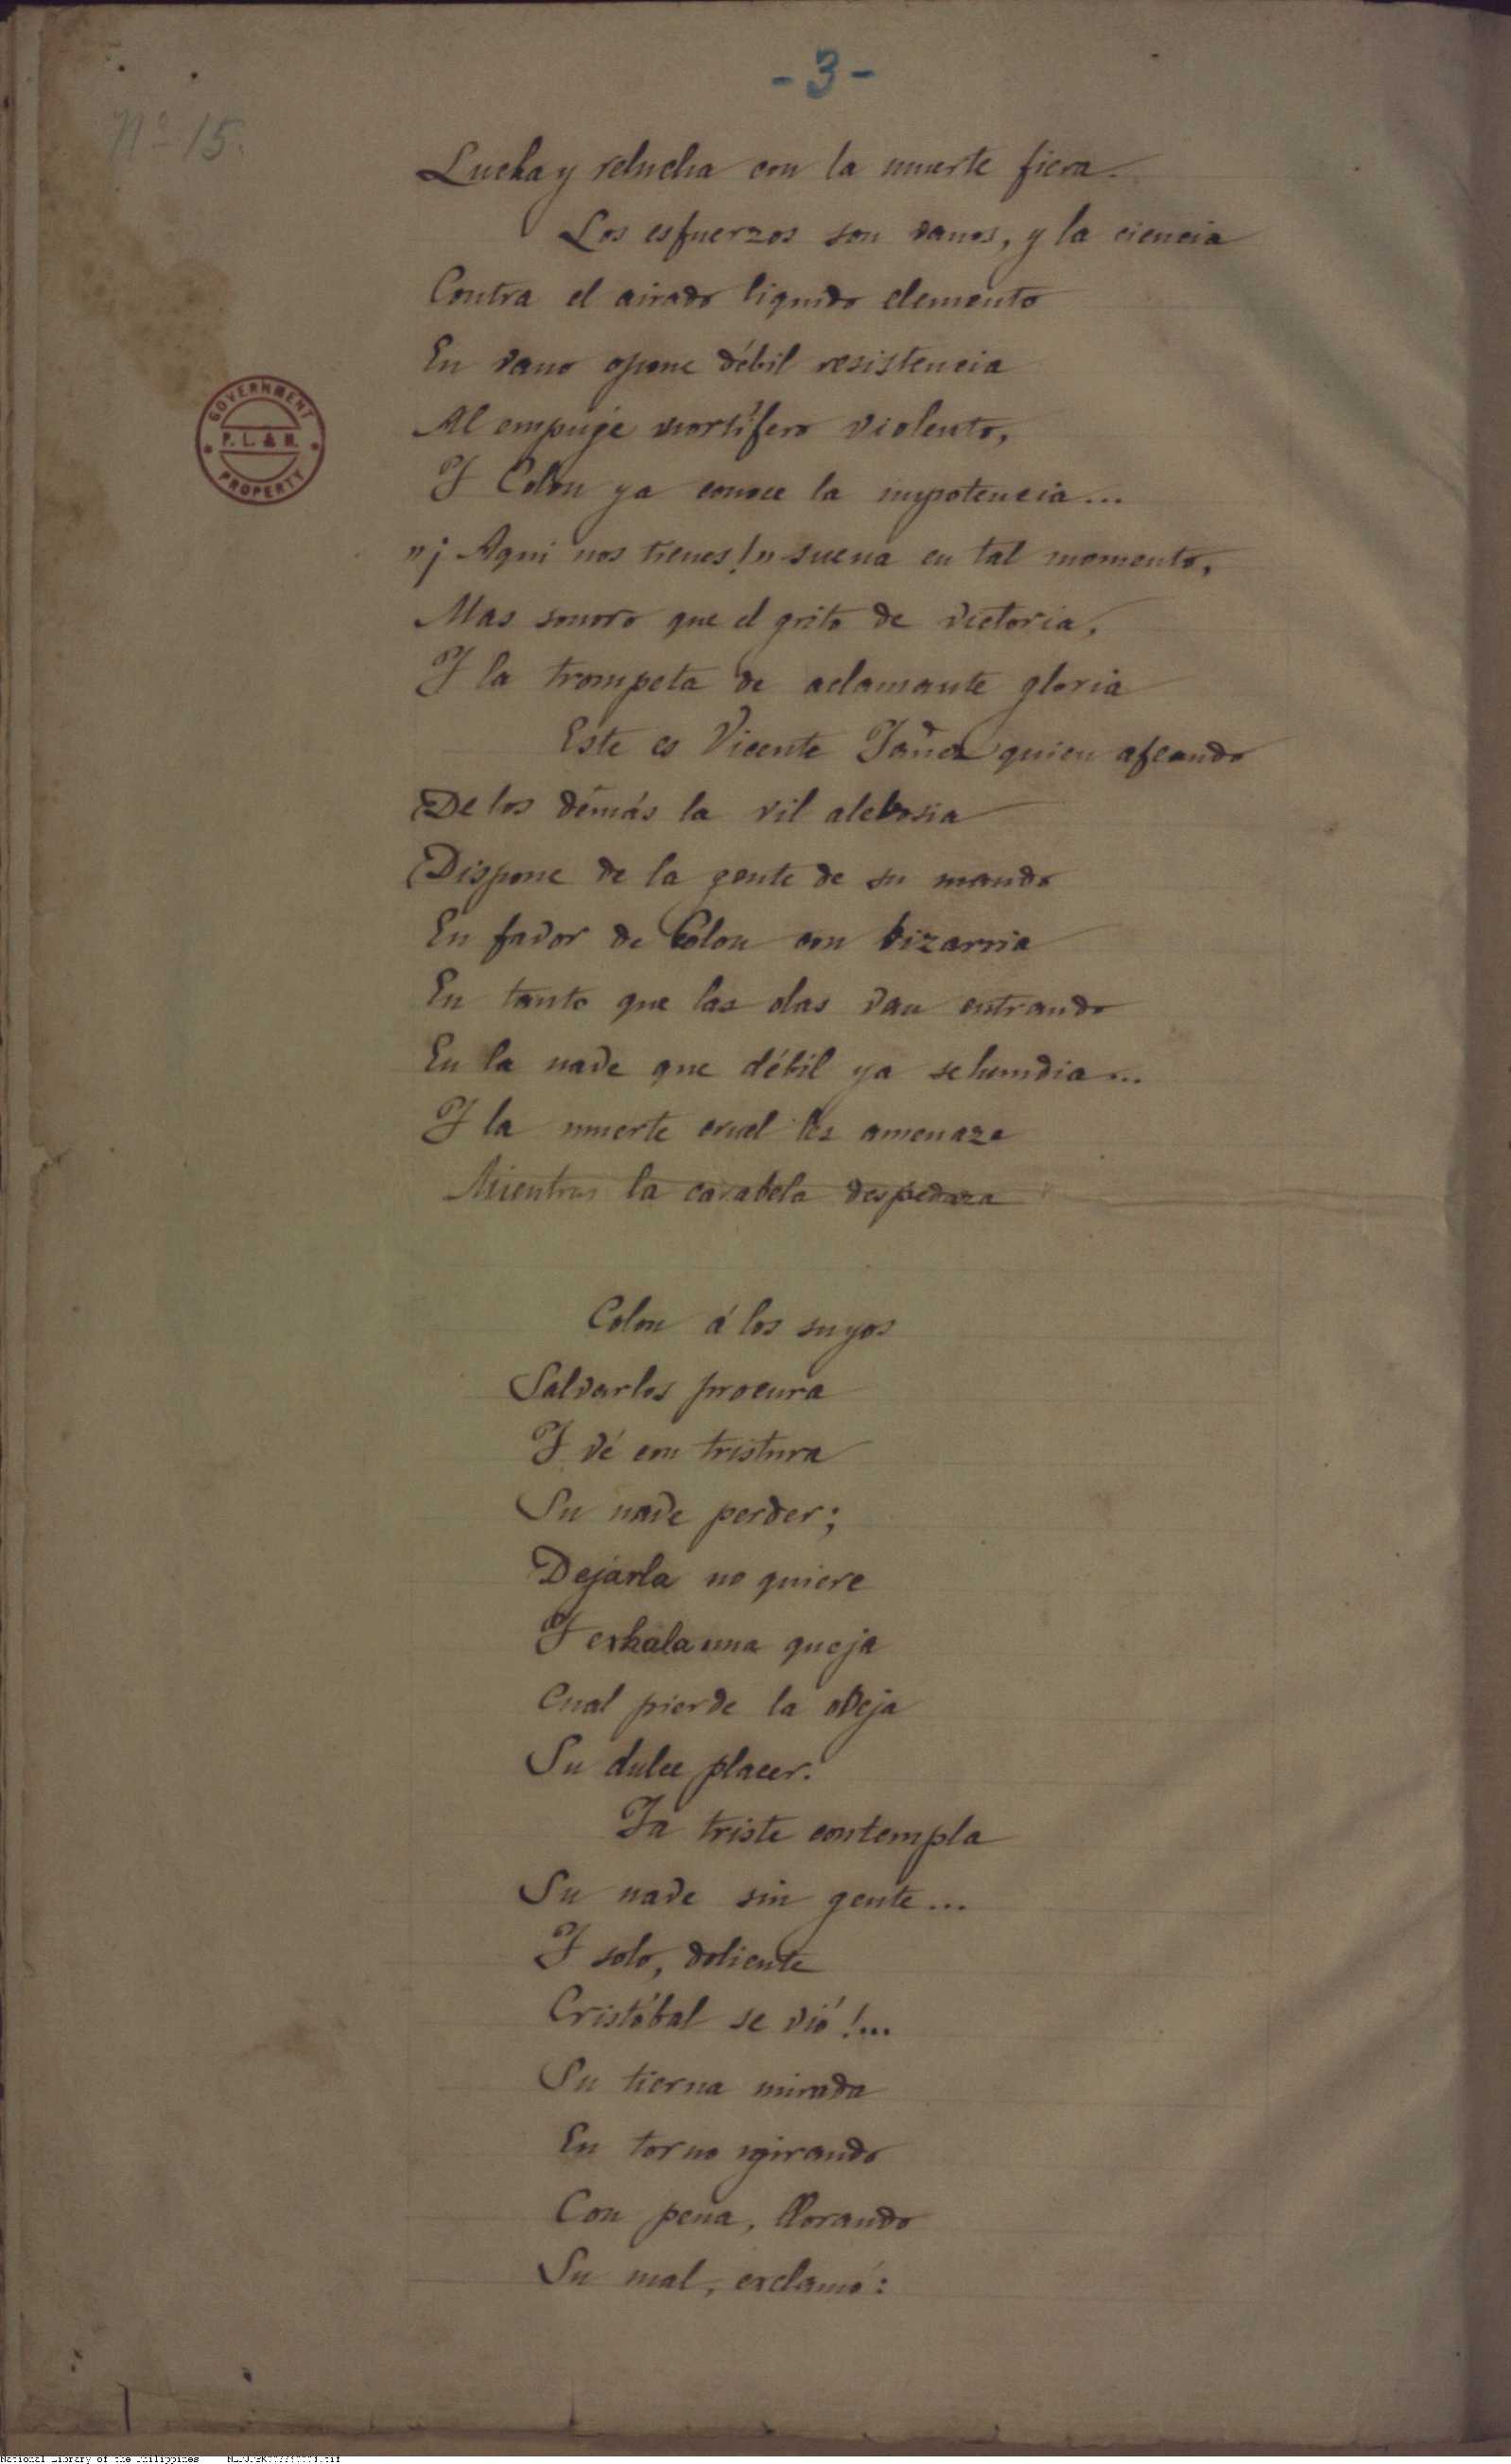 - 3 -
Nº 15.
Lucha y relucha con la muerte fiera.
Los esfuerzos son vanos, y la ciencia
Contra el airado liquido elemento
En vano opone débil resistencia
Al empuje mortífero violento,
GOVERNMENT
P. L. & M.
PROPERTY
Y Colon ya conoce la impotencia...
"¡Aqui nos tienes!" suena en tal momento,
Mas sonoro que el grito de victoria,
Y la trompeta de aclamante gloria
Este es Vicente Yañez quien afeando
De los demás la vil alebosia
Dispone de la gente de su mando
En favor de Colon con bizarria
En tanto que las olas van entrando
En la nave que débil ya se hundia...
Y la muerte cruel les amenaza
Mientras la carabela despedaza
Colon á los suyos
Salvarlos procura
Y vé con tristura
Su nave perder;
Dejarla no quiere
Y exhala una queja
Cual pierde la obeja
Su dulce placer.
Ya triste contempla
Su nave sin gente...
Y solo, doliente
Cristóbal se vió!...
Su tierna mirada
En torno girando
Con pena, llorando
Su mal, exclamó:
National Library of the Philippines